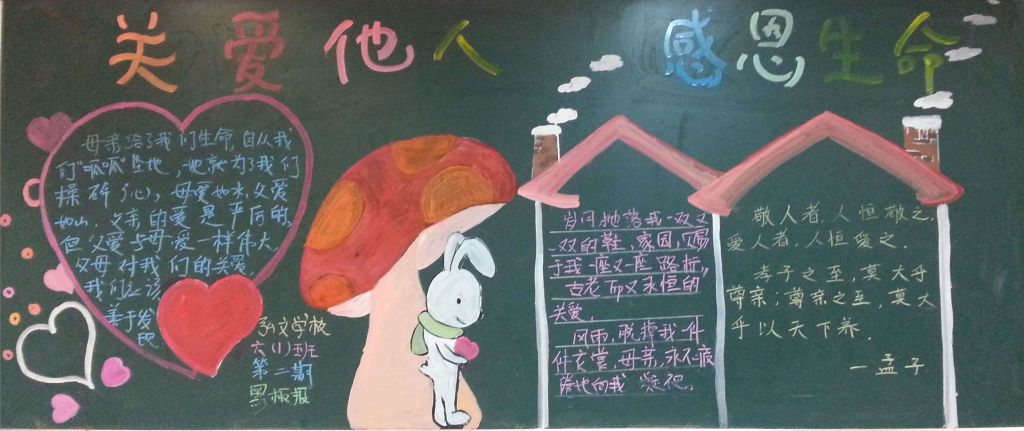 关爱他人
感恩生命
母亲给了我们生命,自从我
们"呱呱"坠地,她就为我们
操碎了心,母爱如水,父爱
如山,父亲的爱是严厉的,
但父爱与母爱一样伟大,
父母对我们的关爱
我们应该
善于发
现
弘文学校
六(1)班
第二期
黑板报
岁月抛落我一双又
一双的鞋,家园,赐
于我一座又一座路标,
古老而又永恒的
关爱,
风雨,脱掉我一件
件衣裳,母亲,永不疲
凝视.
敬人者,人恒敬之,
爱人者,人恒爱之.
孝子之至,莫大乎
尊亲;尊亲之至,莫大
乎以天下养.
—孟子